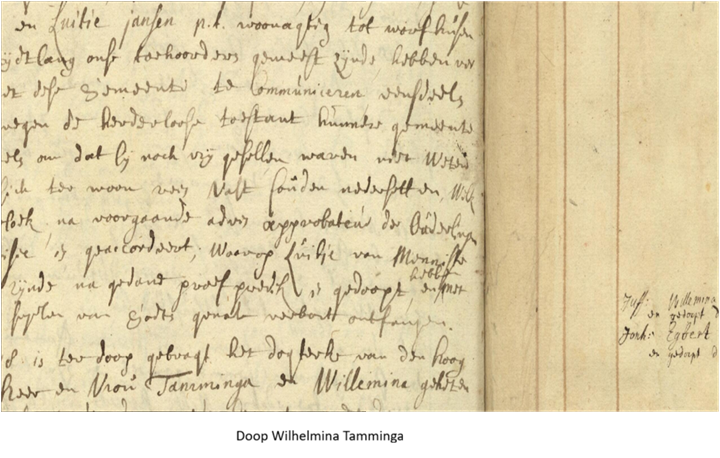 en Luitie jansen p.t. woonagtig tot warfhusen
ydtlang onse toehoorders gemeest zynde hebben ver
met dese gemeente te Communiceren eensdeels
wegen de herderloose toestant hunner gemeente
om dat sy noch vry gesellen waren niet weten
sich ter woon vast souden nedersetten,
soek na voorgaande advis approbateur de Ouderlin
is geaccordeert, Waarop Luitje van Menniste
hebb
zynde na gedane proef predik is gedoopt, en met
van godts genade verbont ontfangen.
is ter doop gebragt het dogterke van den hoog
heer en Vrou Tamminga en Willemina geheten
Juff: Willemina
en gedoopt d
Jonk: Egbert
en gedoopt d
Doop Wilhelmina Tamminga